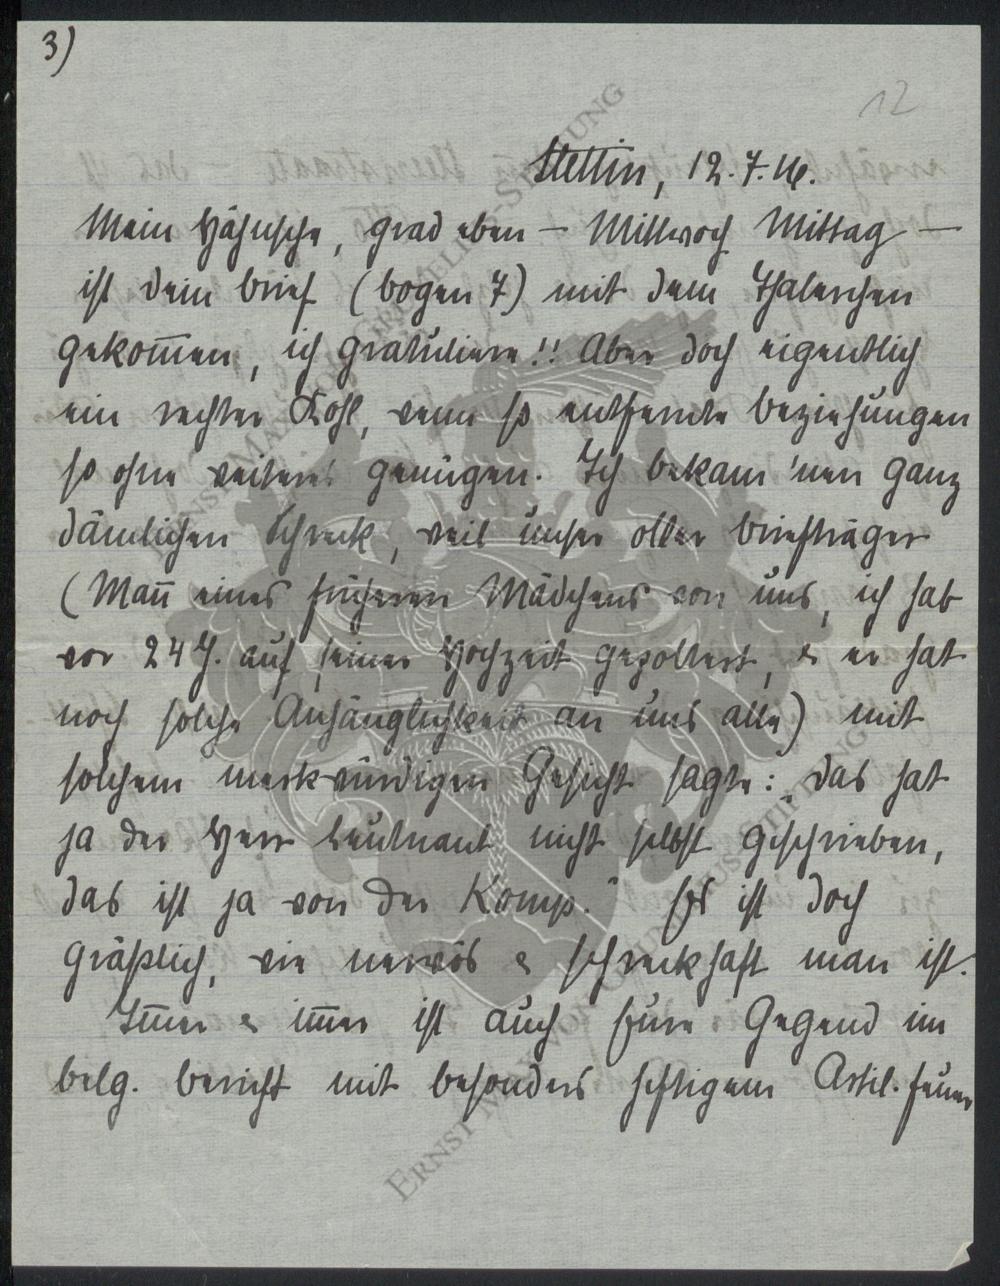 3)
12
Stettin, 12. 7. 16.
Mein Hähnsche, grad eben – Mittwoch Mittag –
ist dein brief (bogen 7) mit dem
gekom̅en, ich gratuliere!! Aber doch eigentlich
ein rechter Kohl, wenn so entfernte beziehungen
so ohne weiteres genügen. Ich bekam 'nen ganz
dämlichen Schreck, weil unser oller briefträger
(Man̅ eines früheren Mädchens von uns, ich hab
vor 24 J. auf seiner Hochzeit gepoltert, & er hat
noch solche Anhänglichkeit an uns alle) mit
solchem merkwürdigen Gesicht sagte: „das hat
ja der Herr Leutnant nicht selbst geschrieben,
das ist ja von der Komp." Es ist doch
gräßlich, wie nervös & schreckhaft man ist.
Im̅er & im̅er ist auch Eure Gegend im
belg. bericht mit besonders heftigem Artil. feuer
ERNST MAX VON GRUNELIUS-STIFTUNG
ERNST MAX VON GRUNELIUS-STIFTUNG